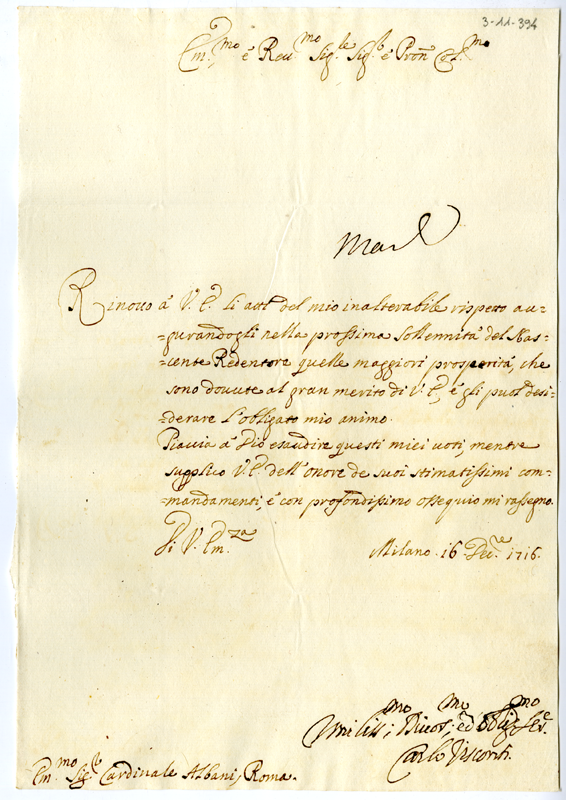 3-11-394
Em.mo è Reu.mo Sig.le Sig.e è Pron Col.mo
Rinouo à V. E. li atti del mio inalterabile rispetto au=
=gurandogli nella prossima sollennità del Nas=
=cente Redentore quelle maggiori prosperità, che
sono douute al gran merito di V. E., è gli puol desi=
=derare l'obligato mio animo.
Piaccia à Dio esaudire questi miei voti, mentre
supplico V. E. dell'onore de suoi stimatissimi com=
=mandamenti, è con profondissimo ossequio mi rassegno.
Di V. Em.za
Milano. 16. Dec.re 1716.
Vmiliss.mo; Diuot.mo; ed Oblig.mo Ser.e
Carlo Visconti.
Em.mo Sig.e Cardinale Albani, Roma.